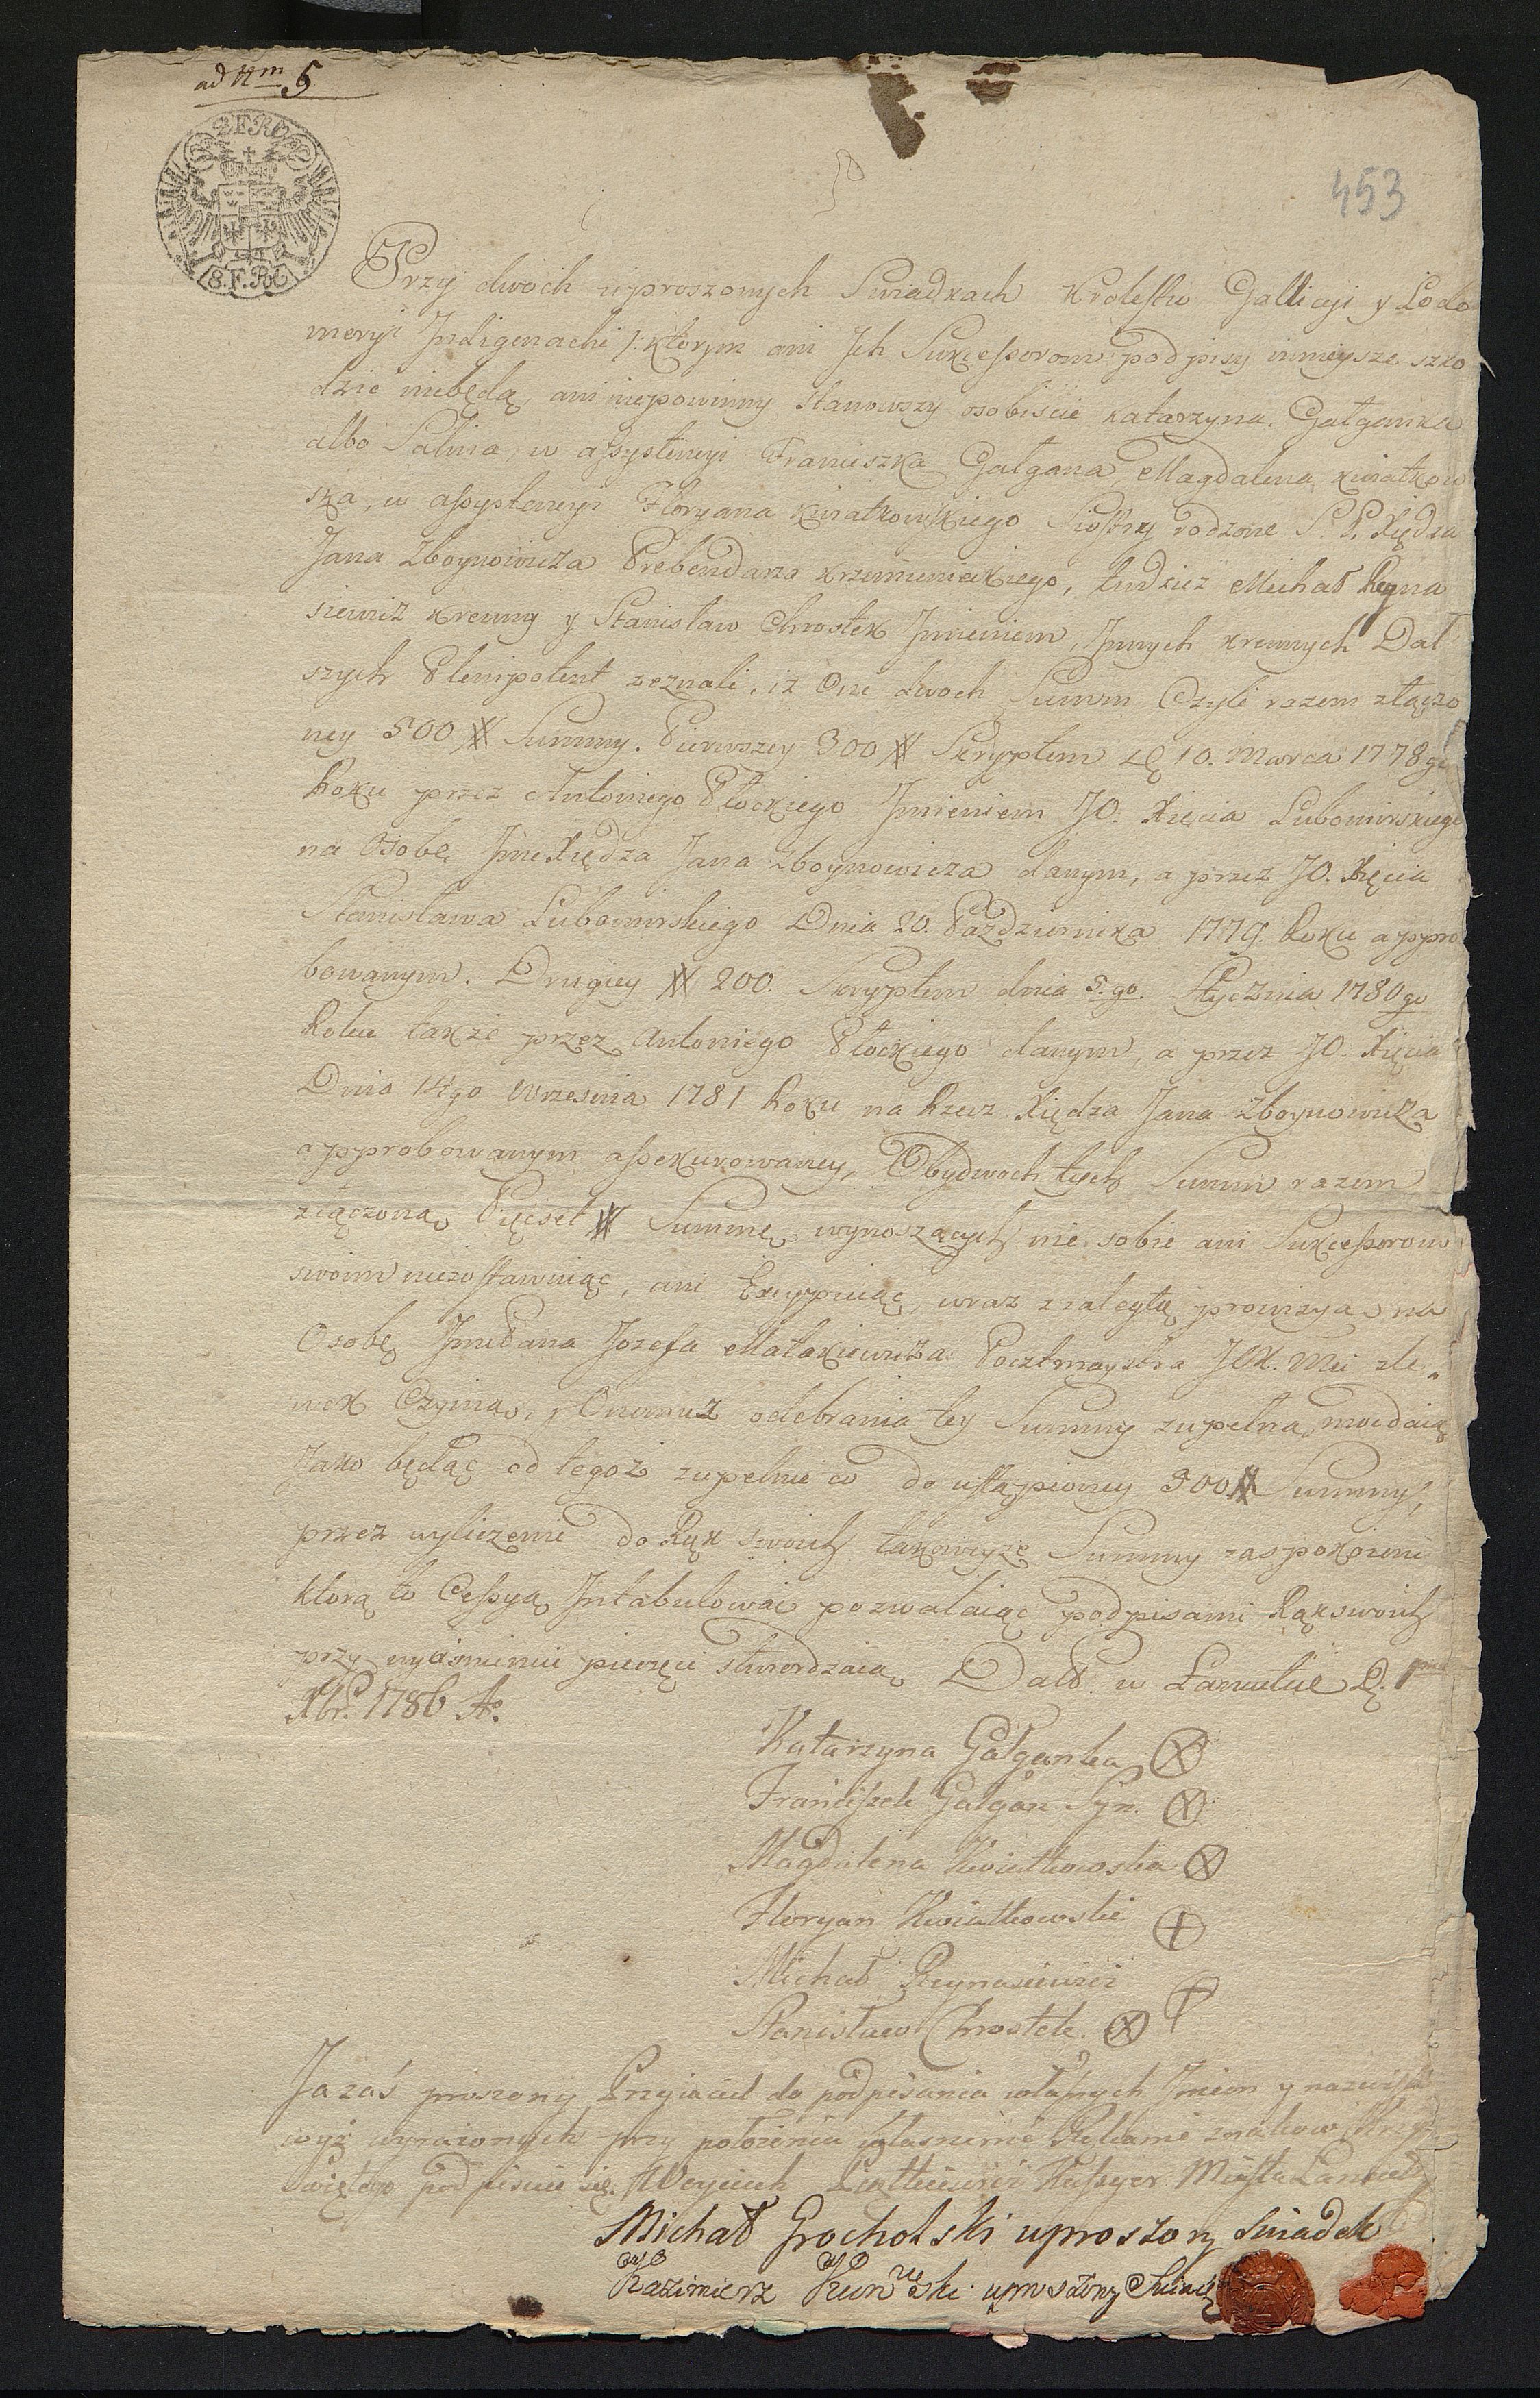 ad Nm 5
8.F.RH
453
8.F.RH
Przy dwoch uproszonych Swiadkach Krolestw Gallicyi y Lodo
meryi Indigenach /: ktorym ani Ich Sukcessorom podpisy ninieysze szko
dzic niebędą, ani niepowinny stanowszy osobiscie Katarzyna Gałganka
albo Salnia w assystencyi Franciszka Gałgana, Magdalena Kwiatkow
ska, w assystencyi Floryana Kwiatkowskiego Siostry rodzone S. P. Xiędza
Jana Zboynowicza Prebendarza Krzemienickiego, tudziez Michał Reyna
siewicz Krewny y Stanisław Chrostek Imieniem Innych Krewnych Dal
szych Plenipotent zeznali, iz One dwoch Summ Czyli razem złączo
ney 500 # Summy. Pierwszey 300 # Skryptem D. 10. Marca 1778 go
Roku przez Antoniego Płockiego Imieniem JO. Xięcia Lubomirskiego
na Osobę Jmc Xiędza Jana Zboynowicza danym, a przez JO. Xięcia
Stanisława Lubomirskiego Dnia 20. Pazdziernika 1779. Roku appro
bowanym. Drugiey # 200. Skryptem dnia 5.go Stycznia 1780 go
Roku takze przez Antoniego Płockiego danym, a przez JO. Xięcia
Dnia 14go Wrzesnia 1781 Roku na Rzecz Xiędza Jana Zboynowicza
approbowanym assekurowaney, Obydwoch tych Summ razem
złączoną Pięcset # Summę wynoszących nic sobie ani Sukcessorom
swoim niezostawuiąc, ani Excypuiąc, wraz z zaległą prowizyą na
Osobę Jmc Pana Jozefa Małakiewicza Pocztmaystra JCK. Mci zle„
wek Czynią, Onemuz odebrania tey Summy zupełną moc daią
Jako będąc od tegoz zupełnie co do ustąpioney 500 # Summy,
przez wyliczenie do Rąk swoich takowyze Summy zaspokoieni
ktorą to Cessyą Intabulowac pozwalaiąc podpisami Rąk swoich
przy wycisnieniu pieczęci stwierdzaią Datt. w Łancucie D. 1ma
Xbr. 1786 A°.
Katarzyna Gałganka
Franciszek Gałgan Syn.
Magdalena Kwiatkowska
Floryan Kwiatkowski
Michał Reynasiewicz
Stanisław Chrostek.
Ja zaś proszony Przyiaciel do podpisania własnych Imion y nazwisk
wyż wyrażonych przy położeniu własnemi Rękami znakow Krzyża
Swiętego podpisuie się. Woyciech Piątkiewicz Kassyer Miasta Łancuta
Michał Grocholski uproszony Swiadek
Kazimierz uproszony Swiadek